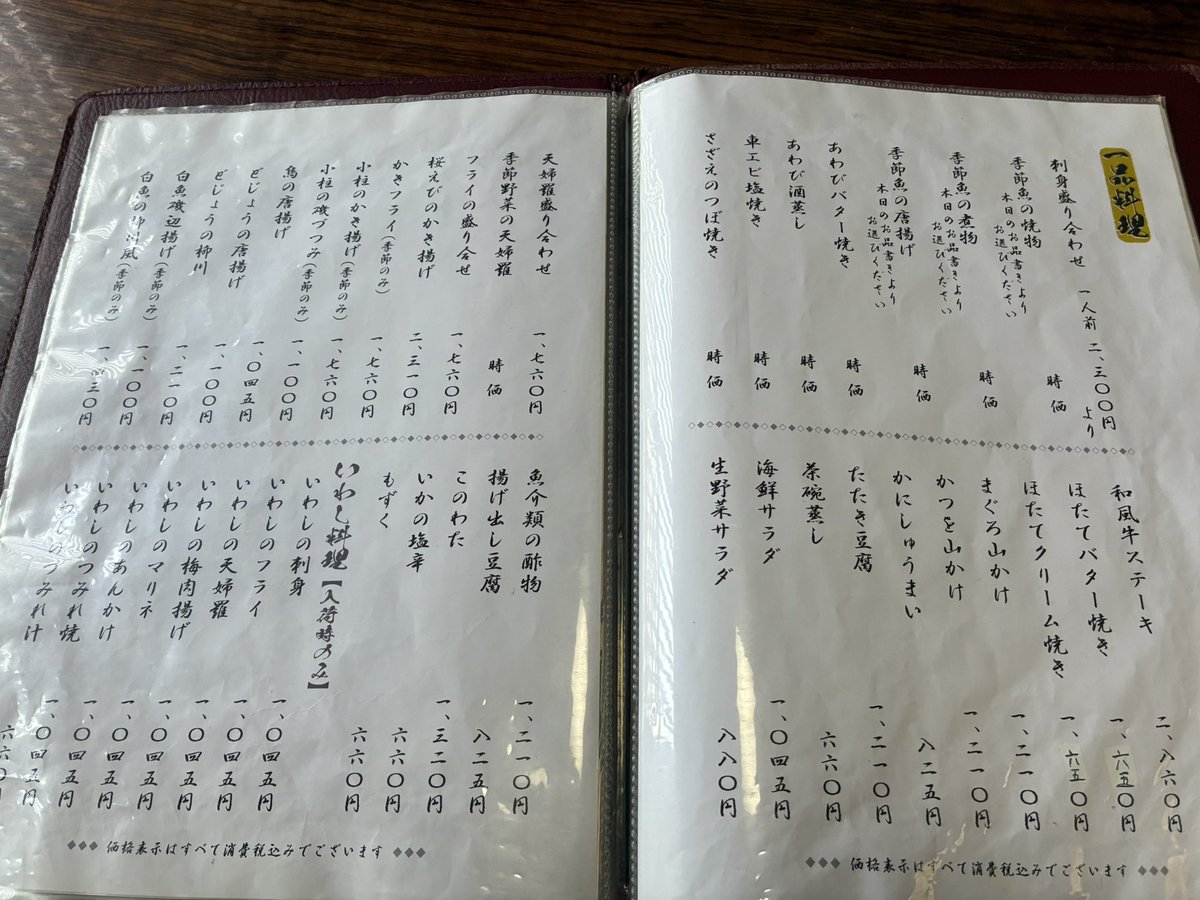 一品料理
刺身盛り合わせ 一人前 二、三〇〇円より
季節魚の焼物 本日のお品書きよりお選びください 時価
季節魚の煮物 本日のお品書きよりお選びください 時価
季節魚の唐揚げ 本日のお品書きよりお選びください 時価
あわびバター焼き 時価
あわび酒蒸し 時価
車エビ塩焼き 時価
さざえのつぼ焼き 時価
和風牛ステーキ 二、八六〇円
ほたてバター焼き 一、六五〇円
ほたてクリーム焼き 一、六五〇円
まぐろ山かけ 一、二一〇円
かつを山かけ 一、二一〇円
かにしゅうまい 八二五円
たたき豆腐 一、二一〇円
茶碗蒸し 六六〇円
海鮮サラダ 一、〇四五円
生野菜サラダ 八八〇円
価格表示はすべて消費税込みでございます
天婦羅盛り合わせ 一、七六〇円
季節野菜の天婦羅 時価
フライの盛り合せ 一、七六〇円
桜えびのかき揚げ 二、三一〇円
かきフライ(季節のみ) 一、七六〇円
小柱のかき揚げ(季節のみ) 一、七六〇円
小柱の磯づつみ(季節のみ) 一、一〇〇円
鳥の唐揚げ 一、〇四五円
どじょうの唐揚げ 一、一〇〇円
どじょうの柳川 一、二一〇円
白魚磯辺揚げ(季節のみ) 一、一〇〇円
白魚の柳川風(季節のみ) 一、四三〇円
魚介類の酢物 一、二一〇円
揚げ出し豆腐 八二五円
このわた 一、三二〇円
いかの塩辛 六六〇円
もずく 六六〇円
いわし料理【入荷時のみ】
いわしの刺身 一、〇四五円
いわしのフライ 一、〇四五円
いわしの天婦羅 一、〇四五円
いわしの梅肉揚げ 一、〇四五円
いわしのマリネ 一、〇四五円
いわしのあんかけ 一、〇四五円
いわしのつみれ焼 一、〇四五円
いわしのつみれ汁 六六〇円
価格表示はすべて消費税込みでございます